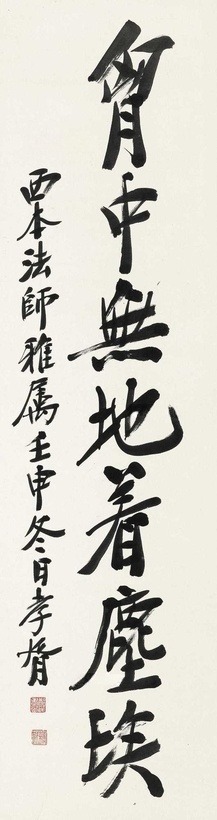 胷中無地着塵埃
西本法師雅属壬申冬日孝胥